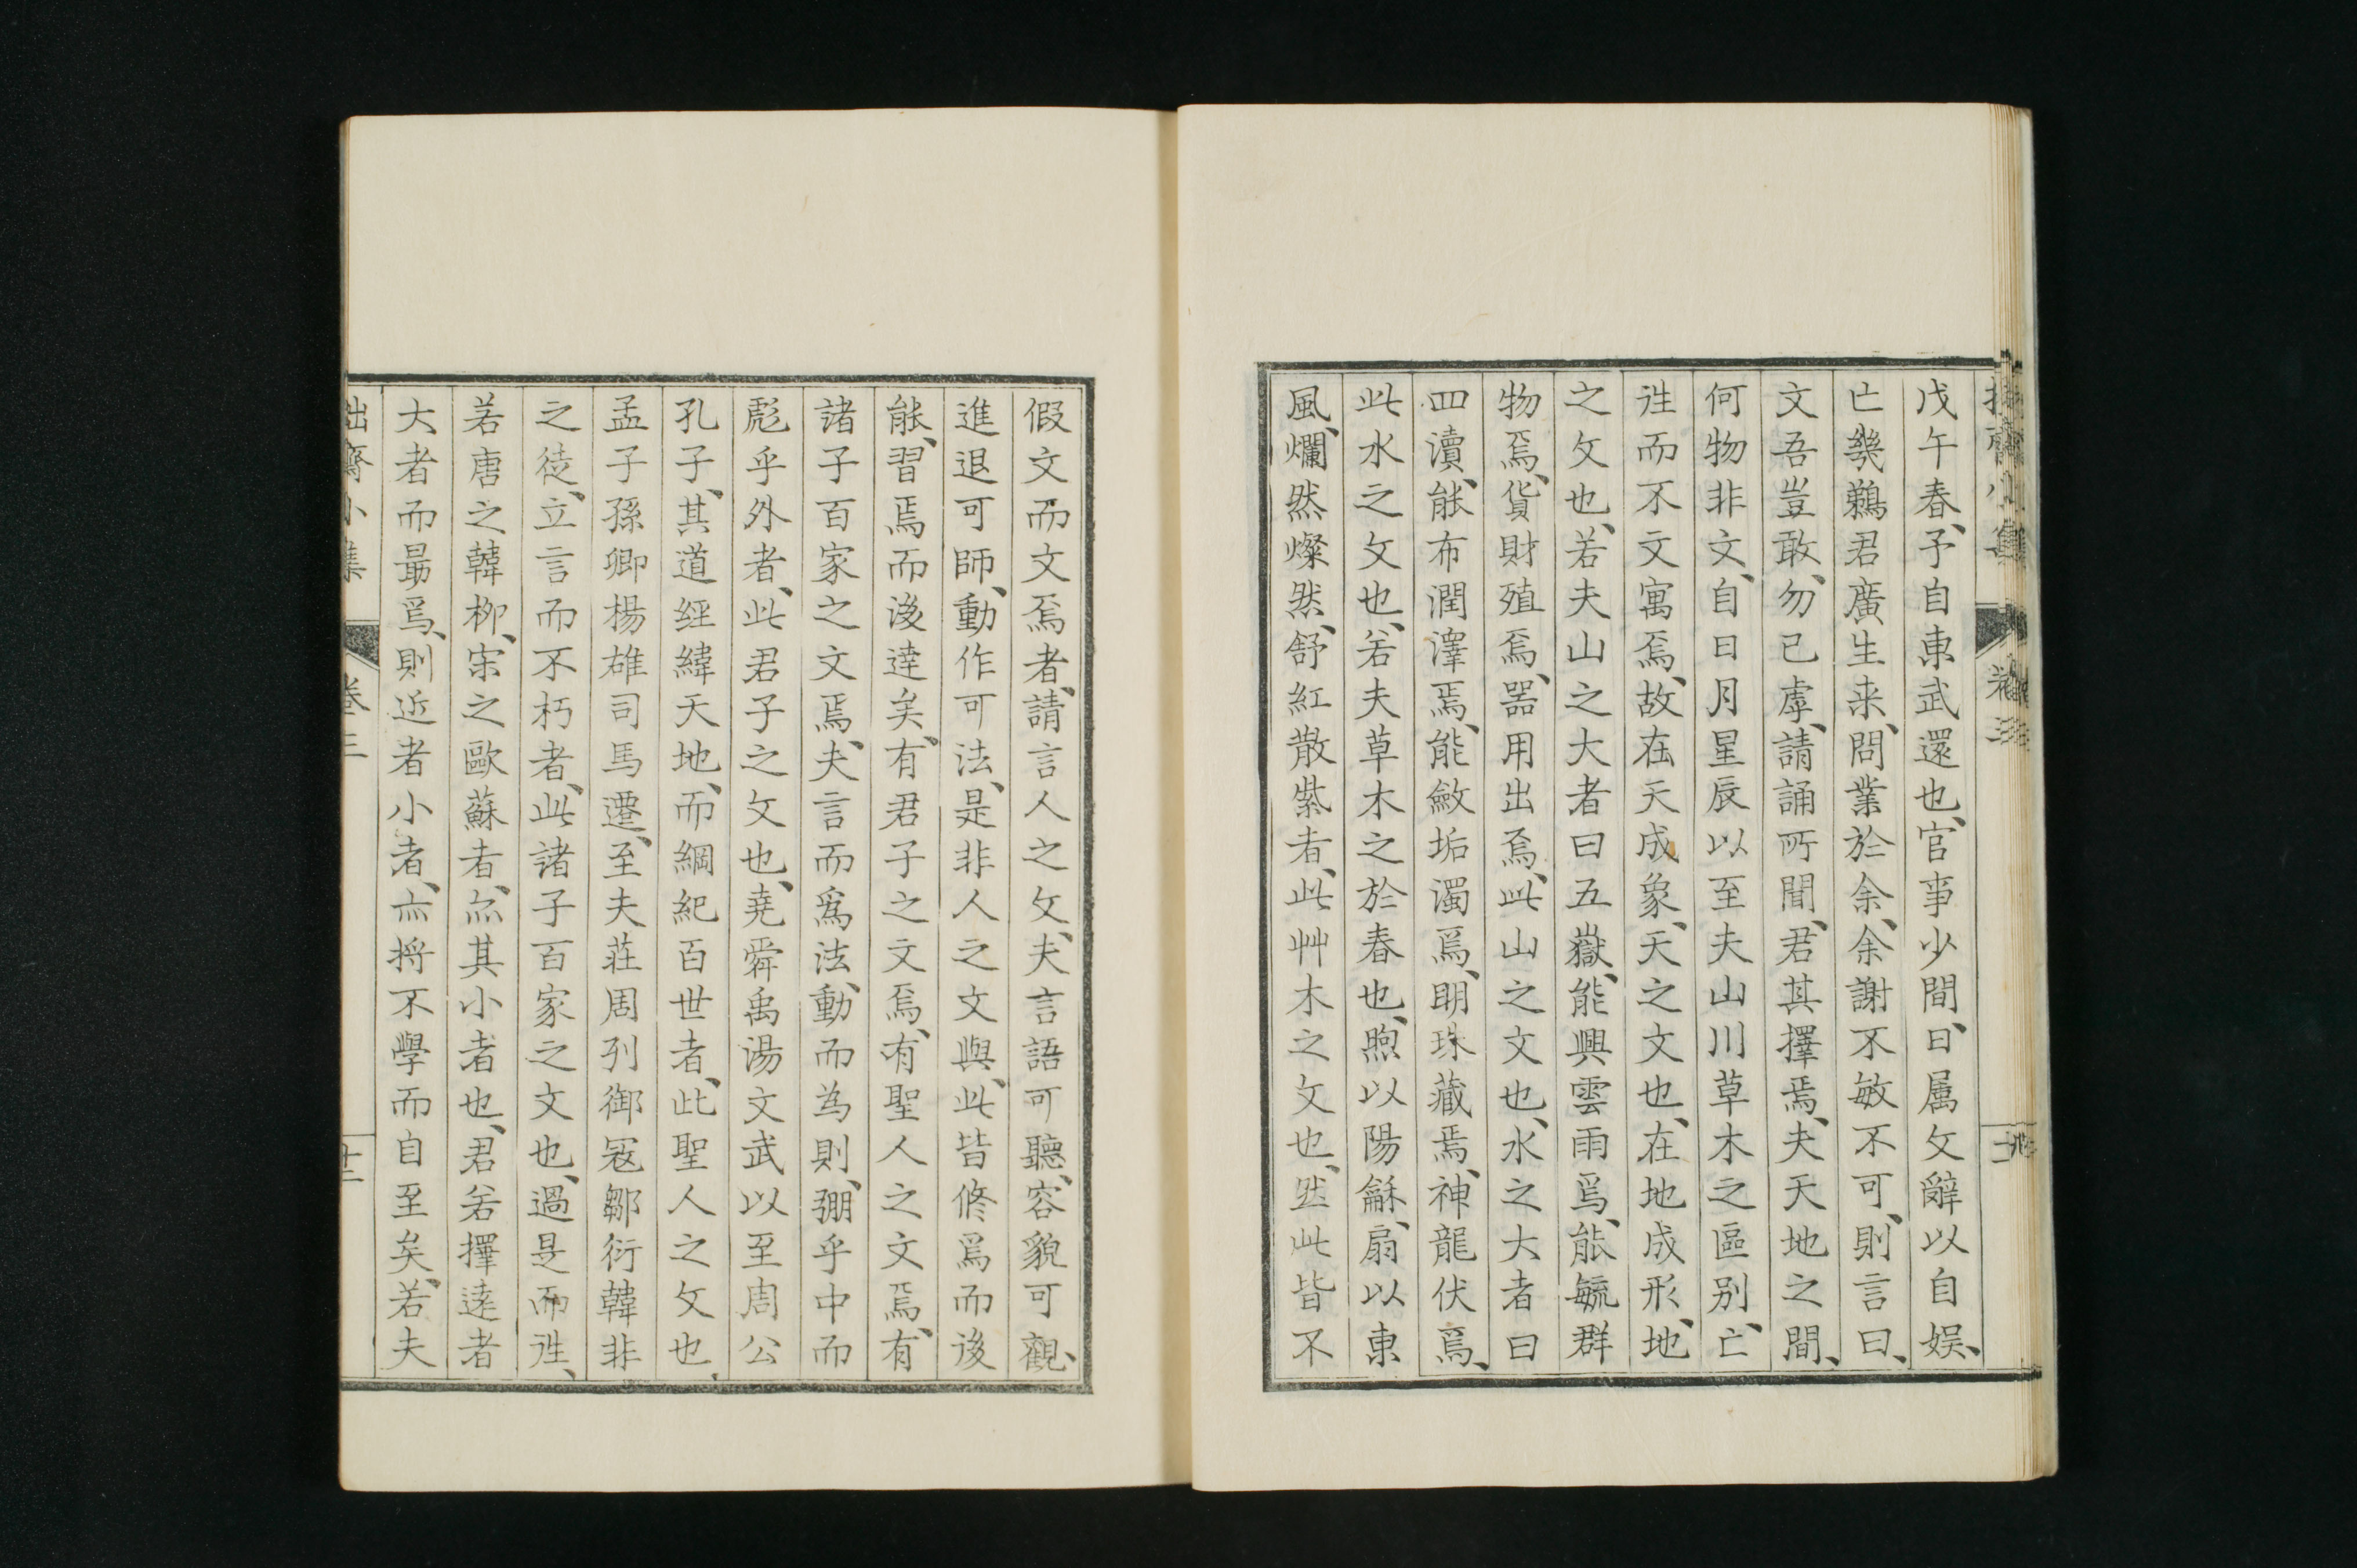 戊午春、予自東武還也、官事少間、日属文辭以自娯、
亡幾鵜君廣生来、問業於余、余謝不敏不可、則言曰、
文吾豈敢、勿已虖、請誦所聞、君其擇焉、夫天地之間、
何物非文、自日月星辰以至夫山川草木之區别、亡
往而不文寓焉、故在天成象、天之文也、在地成形、地
之文也、若夫山之大者曰五嶽、能興雲雨焉、能毓群
物焉、貨財殖焉、噐用出焉、此山之文也、水之大者曰
四瀆、能布潤澤焉、能斂垢濁焉、明珠藏焉、神龍伏焉、
此水之文也、若夫草木之於春也、煦以陽龢、扇以東
風、爛然燦然、舒紅散紫者、此艸木之文也、然此皆不
假文而文焉者、請言人之文、夫言語可聽、容貌可觀、
進退可師、動作可法、是非人之文與、此皆修焉而後
能、習焉而後達矣、有君子之文焉、有聖人之文焉、有
諸子百家之文焉、夫言而爲法、動而為則、弸乎中而
彪乎外者、此君子之文也、堯舜禹湯文武以至周公
孔子、其道經緯天地、而綱紀百世者、此聖人之文也、
孟子孫卿楊雄司馬遷、至夫莊周列御冦鄒衍韓非
之徒、立言而不朽者、此諸子百家之文也、過是而往、
若唐之韓柳、宋之歐蘇者、亦其小者也、君若擇遠者
大者而最焉、則近者小者、亦将不學而自至矣、若夫
拙齋小集
卷三